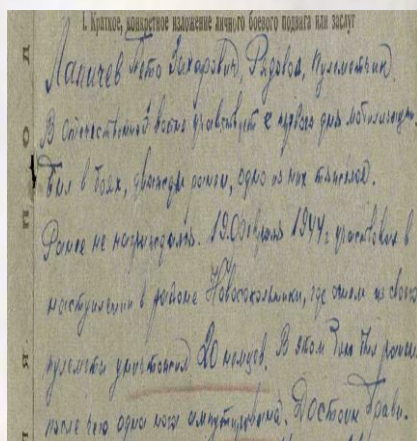 I. Краткое, конкретное изложение личного боевого подвига или заслуг
Лапичев Петр Захарович, Рядовой, Пулеметчик.
В отечественной войне участвует с первого дня мобилизации.
Был в боях, дважды ранен, одно из них тяжелое.
Ранее не награждался. 19 Февраля 1944 г участвовал в
наступлении в районе Новосокольники, где огнем из своего
пулемета уничтожил 20 немцев. В этом бою был ранен
после чего одна нога ампутирована. Достоин Прави-